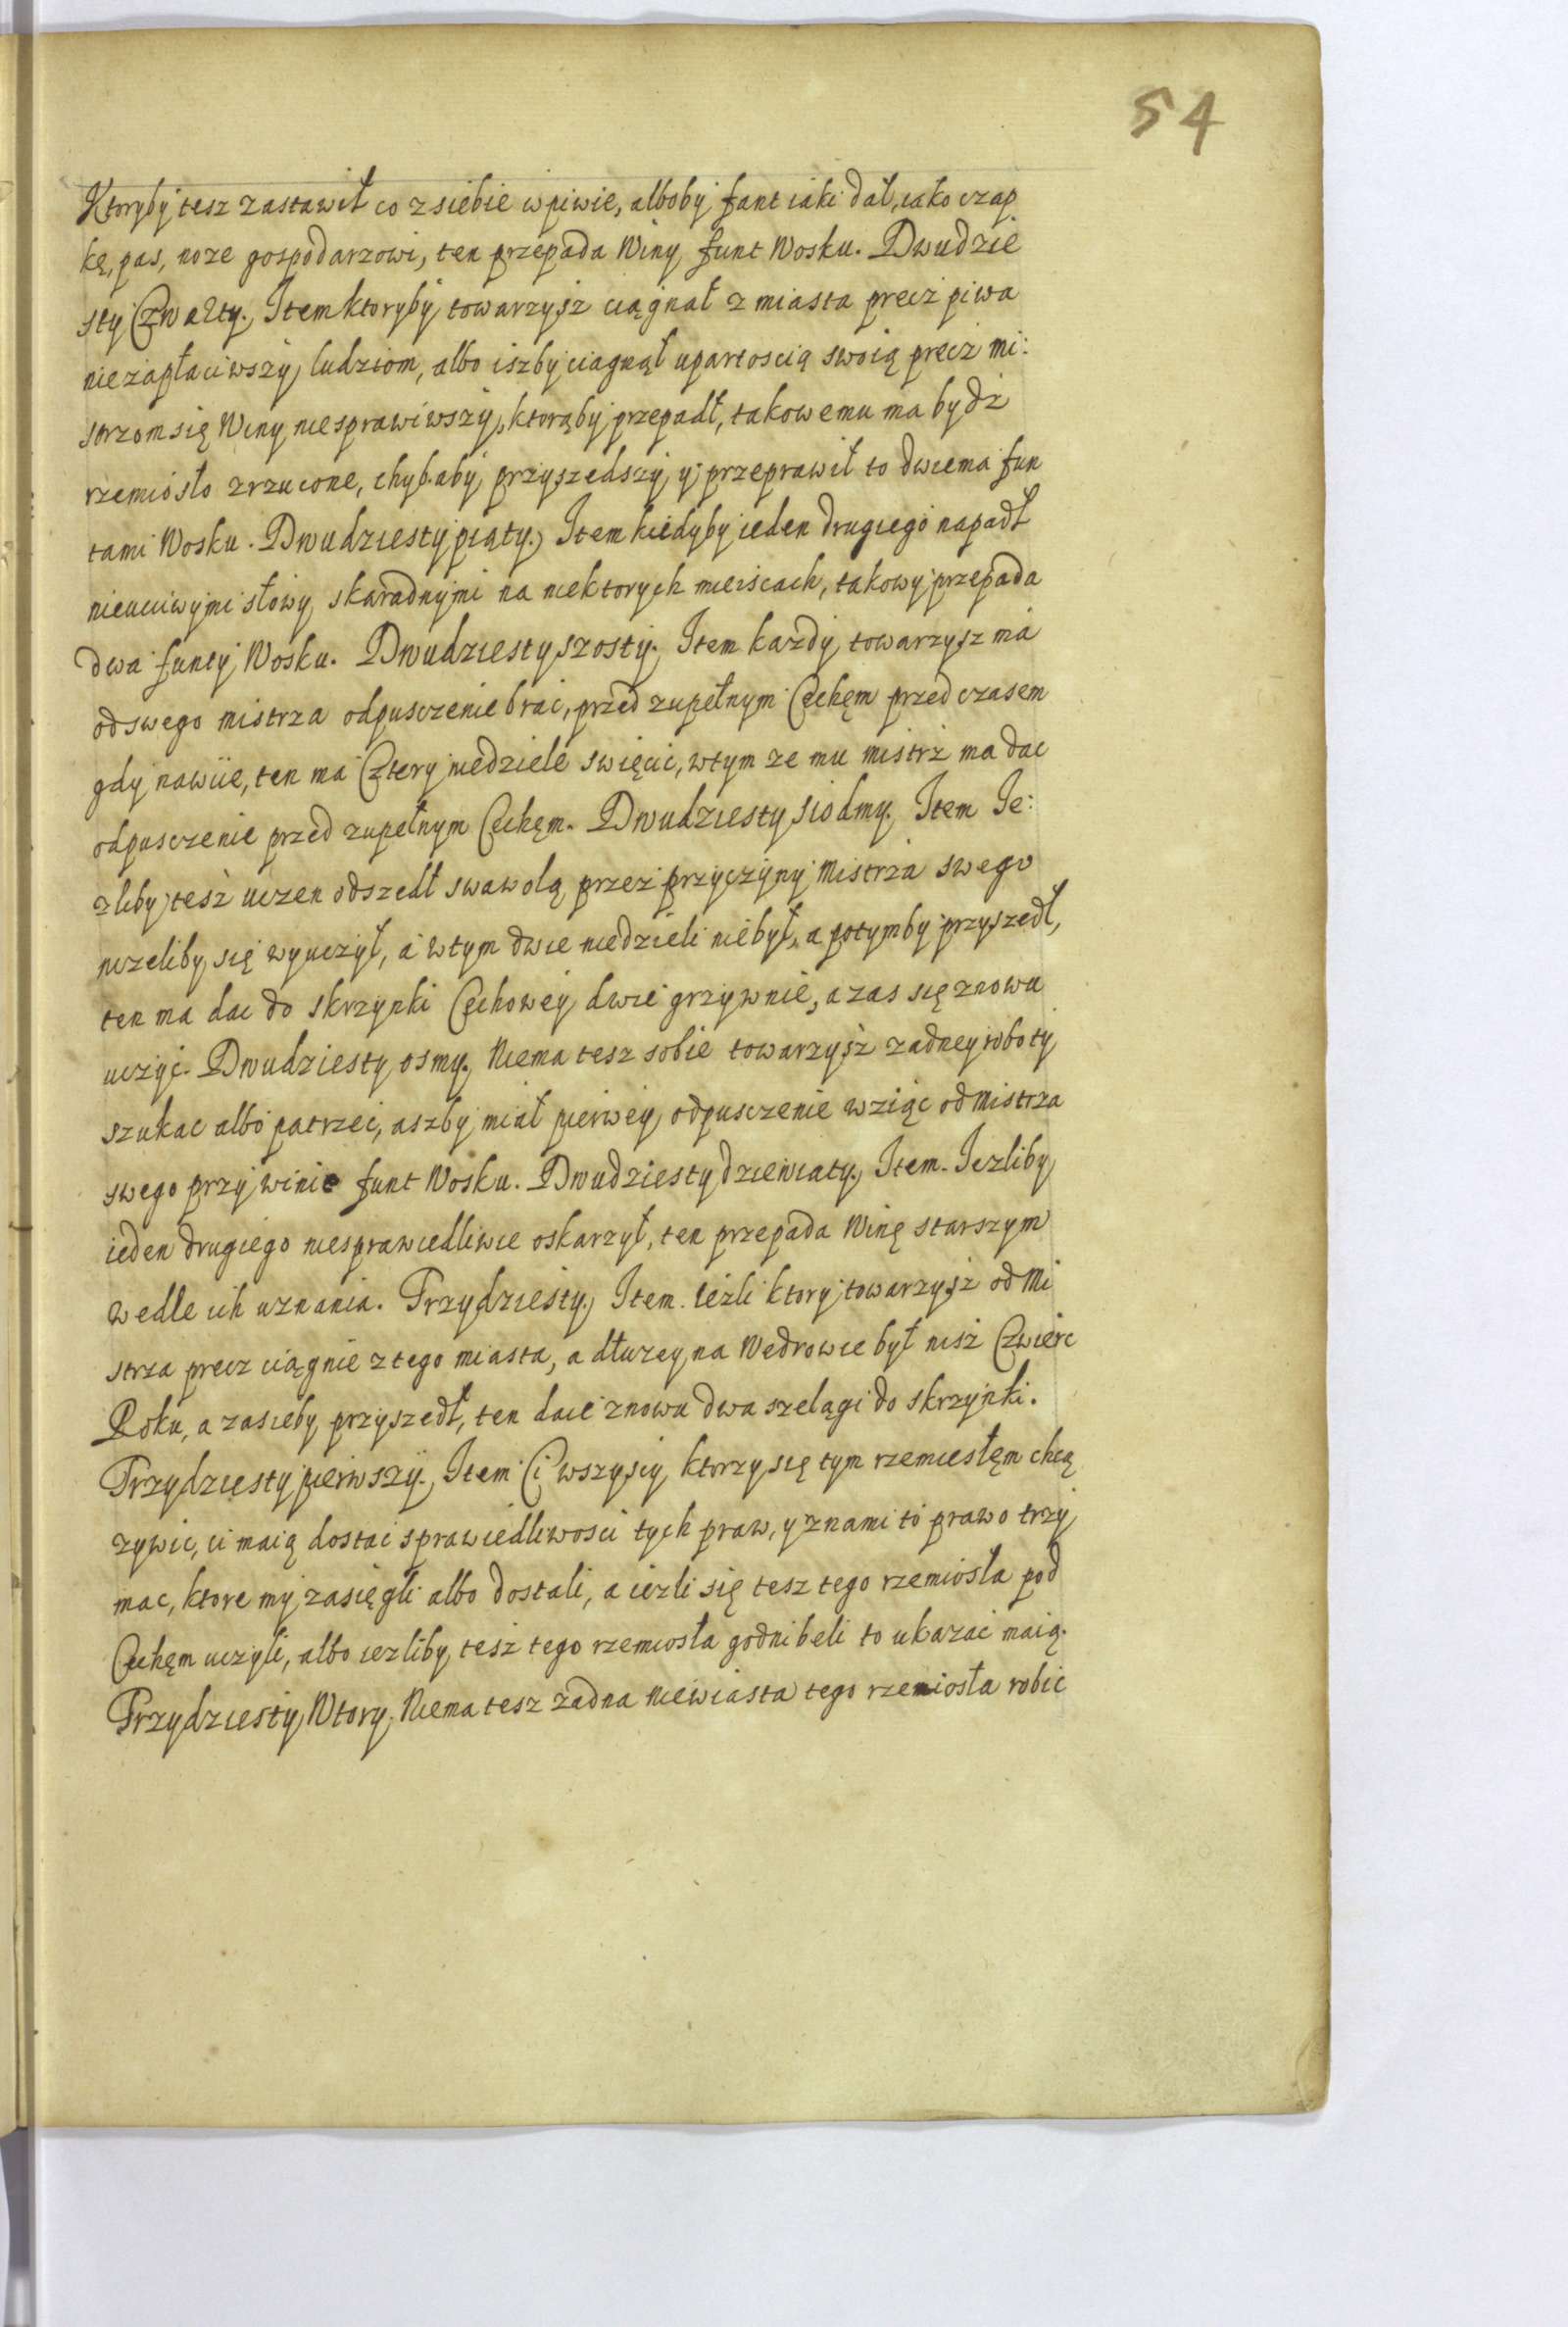 54
Ktoryby tesz zastawił co z siebie w piwie, alboby fant iaki dał, iako czap
kę, pas, noze gospodarzowi, ten przepada Winy funt Wosku. Dwudzie
sty Czwarty. Item ktoryby towarzysz ciągnał z miasta precz piwa
niezapłaciwszy ludziom, albo iszby ciagnął upartoscią swoią precz mi:
strzom się Winy niesprawiwszy, ktorąby przepadł, takowemu ma bydz
rzemiosło zrzucone, chybaby przyszedszy y przeprawił to dwiema fun
tami Wosku. Dwudziesty piąty. Item kiedyby ieden drugiego napadł
nieucciwymi słowy skaradnymi na niektorych mieiscach, takowy przepada
dwa funty Wosku. Dwudziesty szosty. Item kazdy towarzysz ma
od swego mistrza odpusczenie brac, przed zupełnym Cechęm przed czasem
gdy nawiie, ten ma Cztery niedziele swięcic, wtym ze mu mistrz ma dac
odpusczenie przed zupełnym Cechęm. Dwudziesty siodmy. Item Ie:
zliby tesz uczen odszedł swawolą przez przyczyny Mistrza swego
nizeliby się wyuczył, a wtym dwie niedzieli niebył, a potymby przyszedł,
ten ma dac do skrzynki Cechowey dwie grzywnie, a zas się znowu
uczyc. Dwudziesty osmy. Niema tesz sobie towarzysz zadney roboty
szukac albo patrzec, aszby miał pierwey odpusczenie wziąc od Mistrza
swego przy winie funt Wosku. Dwudziesty dziewiaty. Item. Iezliby
ieden drugiego niesprawiedliwie oskarzył, ten przepada Winę starszym
wedle ich uznania. Trzydziesty. Item. Iezli ktory towarzysz od Mi
strza precz ciągnie z tego miasta, a dłuzey na Wedrowce był nisz Czwierc
Roku, a zasieby przyszedł, ten daie znowu dwa szelągi do skrzynki.
Trzydziesty pierwszy. Item Ci wszyscy ktorzy się tym rzemiesłęm chcą
zywic, ci maią dostac sprawiedliwosci tych praw, y znami to prawo trzy
mac, ktore my zasięgli albo dostali, a iezli się tesz tego rzemiosła pod
Cechęm uczyli, albo iezliby tesz tego rzemiosła godni beli to ukazac maią.
Trzydziesty Wtory. Niema tesz zadna niewiasta tego rzemiosła robic